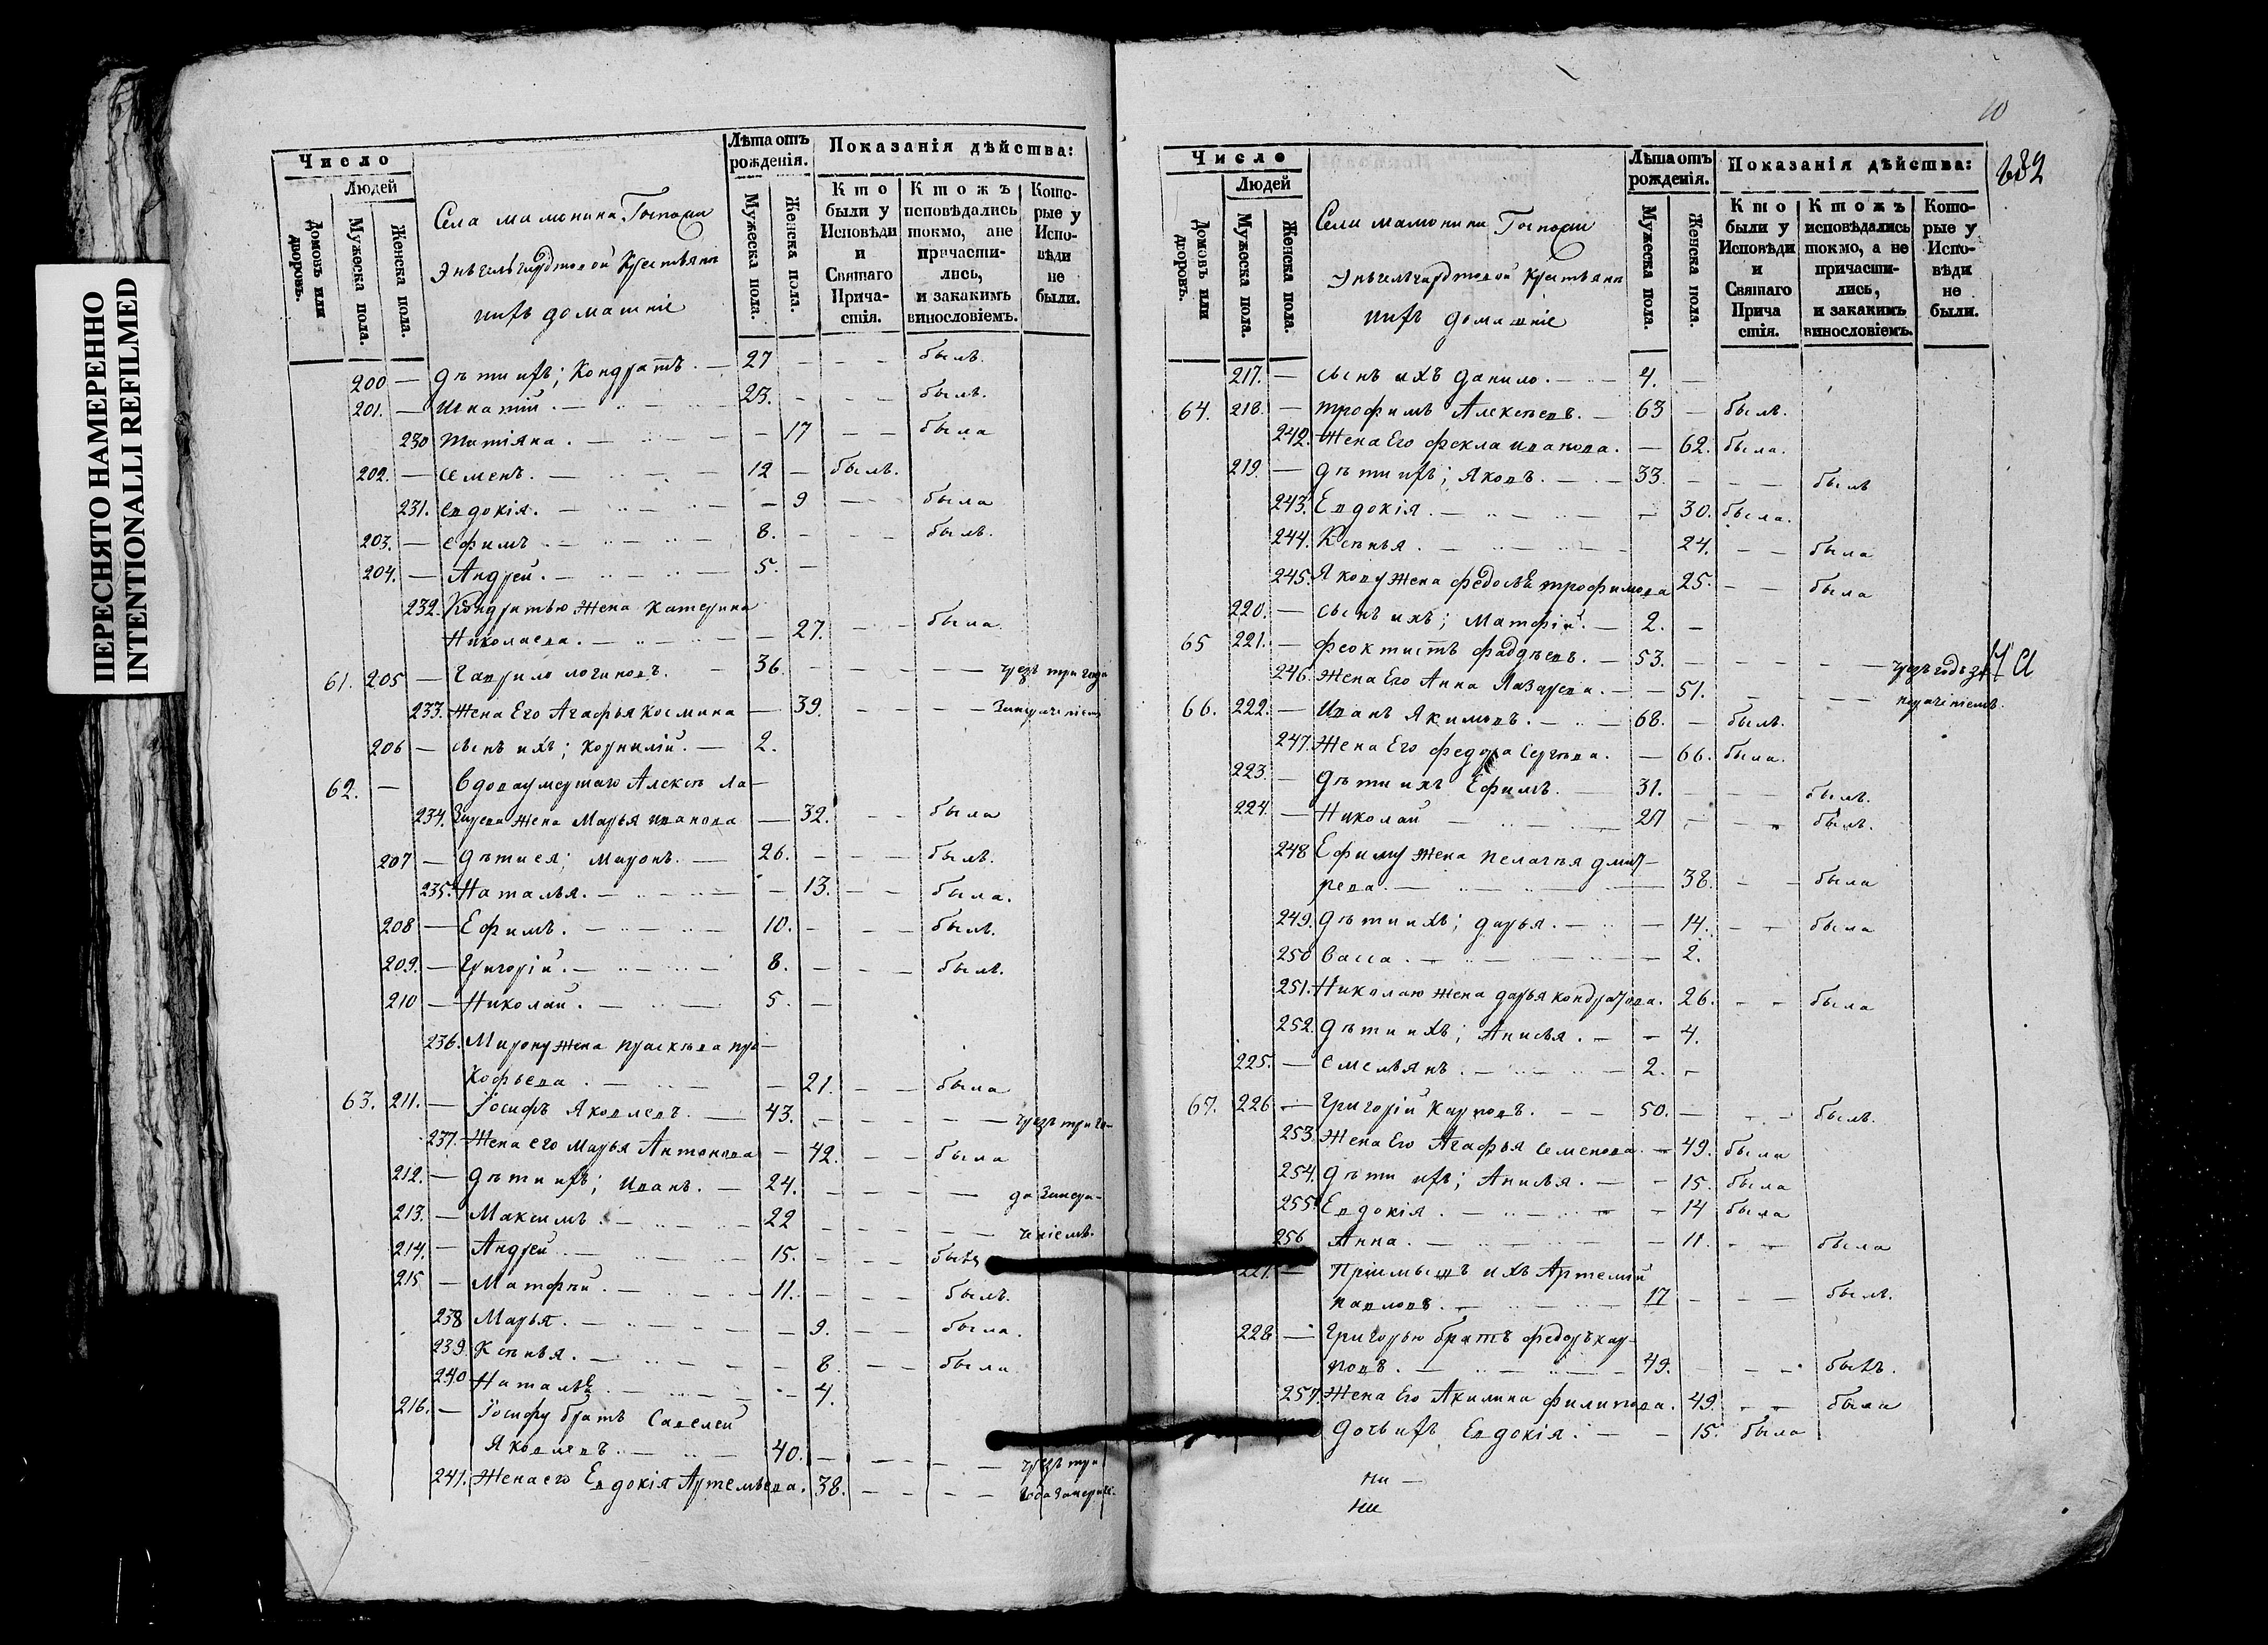 ПЕРЕСНЯТО НАМЕРЕННО
INTENTIONALLI REFILMED
Число
Людей
Домовъ или дворовъ.
Мужеска пола.
Женска пола.
Села мамонина Госпожи
Энгельгардтовой Крестьяне
ихъ домашніе
Лѣта отъ рожденія.
Мужеска пола.
Женска пола.
Показанія дѣйства:
Кто были у Исповѣди и Святаго Прича-стія.
Ктожъ исповѣдались токмо, а не причасти-лись, и закакимъ винословіемъ.
Кото-рые у Испо-вѣди не были.
200 — дѣти ихъ; Кондратъ. — 27 — — — былъ.
201. — Игнатій. — 23. — — — былъ.
230 Татіяна. — — 17 — — была
202. — семенъ. — 12 — былъ.
231. евдокія. — — 9 — была
203. — ефимъ — 8. — — — былъ.
204. — Андрей. — 5. —
232. Кондратью жена Катерина
Николаева. — — 27. — — была
61. 205 — Гаврило логиновъ. — 36. — — — — чрезъ три года
233. Жена Его Агафья Космина — 39. — — — —
206 — сынъ ихъ; корнилій. — 2.
62. — Вдова умершаго Алексѣ Ла-
234. зарева жена Марья иванова — 32. — — была
207 — дѣти ея; миронъ. — 26. — — — былъ.
235. Наталья. — — 13. — — была.
208 — Ефимъ. — 10. — — — былъ.
209. — Григорій. — 8. — — — былъ.
210 — Николай. — 5. —
236. Мирону жена прасковья про-
кофьева. — — 21. — — была
63. 211. — Іосифъ Яковлевъ. — 43. — — — — чрезъ три го-
237. Жена его Марья Антонова — 42. — — была
212. — дѣти ихъ; иванъ. — 24. — — — — да
213. — Максимъ. — 22 — — — —
214. — Андрей. — 15. — — былъ
215 — Матфѣй. — 11. — — — былъ.
238 Марья. — — 9. — — была.
239. Ксенья. — — 8. — — была
240 Наталья. — — 4.
216. — Іосифу братъ Савелей
Яковлевъ. — 40. — — — — чрезъ три
241. Жена его Евдокія Артемьева. 38. — — — — года
10
682
Число
Людей
Домовъ или дворовъ.
Мужеска пола.
Женска пола.
Села мамонина Госпожи
Энгельгардтовой Крестьяне
ихъ домашніе
Лѣта отъ рожденія.
Мужеска пола.
Женска пола.
Показанія дѣйства:
Кто были у Исповѣди и Святаго Прича стія.
Ктожъ исповѣдались токмо, а не причасти-лись, и закакимъ винословіемъ.
Кото-рые у Испо-вѣди не были.
217. — сынъ ихъ данило. — 4. —
64. 218. — трофимъ Алексѣевъ. — 63 — былъ.
242. Жена Его фекла иванова. — 62. была.
219. — дѣти ихъ; Яковъ. — 33. — — — былъ
243. Евдокія. — — 30. была.
244. Ксенья. — 24. — — была
245. Якову жена федосья трофимова 25. — — была
220. — сынъ ихъ; Матфій. — 2. —
65 221. — феоктистъ фаддѣевъ. — 53. — — — —
246. Жена Его Анна Лазарева. — — 51. — — —
66. 222. — Иванъ Якимовъ. — 68. — былъ.
247. Жена Его федора Сергѣева. — 66. была.
223. — дѣти ихъ Ефимъ. — 31. — — — былъ.
224. — Николай — 27 — — — былъ.
248 Ефиму жена пелагья дмит-
рева. — 38. — — была
249. дѣти ихъ; дарья. — — 14. — — была
250 васса. — — 2.
251. Николаю жена дарья кондратова. 26. — — была
252. дѣти ихъ; Анисья. — — 4.
225. — емельянъ. — 2. —
67. 226 — Григорій Карповъ. — 50. — — — былъ.
253. Жена Его Агафья семенова. — 49. была
254. дѣти ихъ; Анисья. — — 15. была
255. Евдокія. — — 14 была
256 Анна. — — 11. — — была
227. — Пріимышъ ихъ Артемій
павловъ. — 17 — — — былъ.
228 — Григорью братъ федоръ кар-
повъ. — 49. — — былъ.
257. Жена Его Акилина филипова. 49. — — была
дочь ихъ Евдокія. — — 15. была